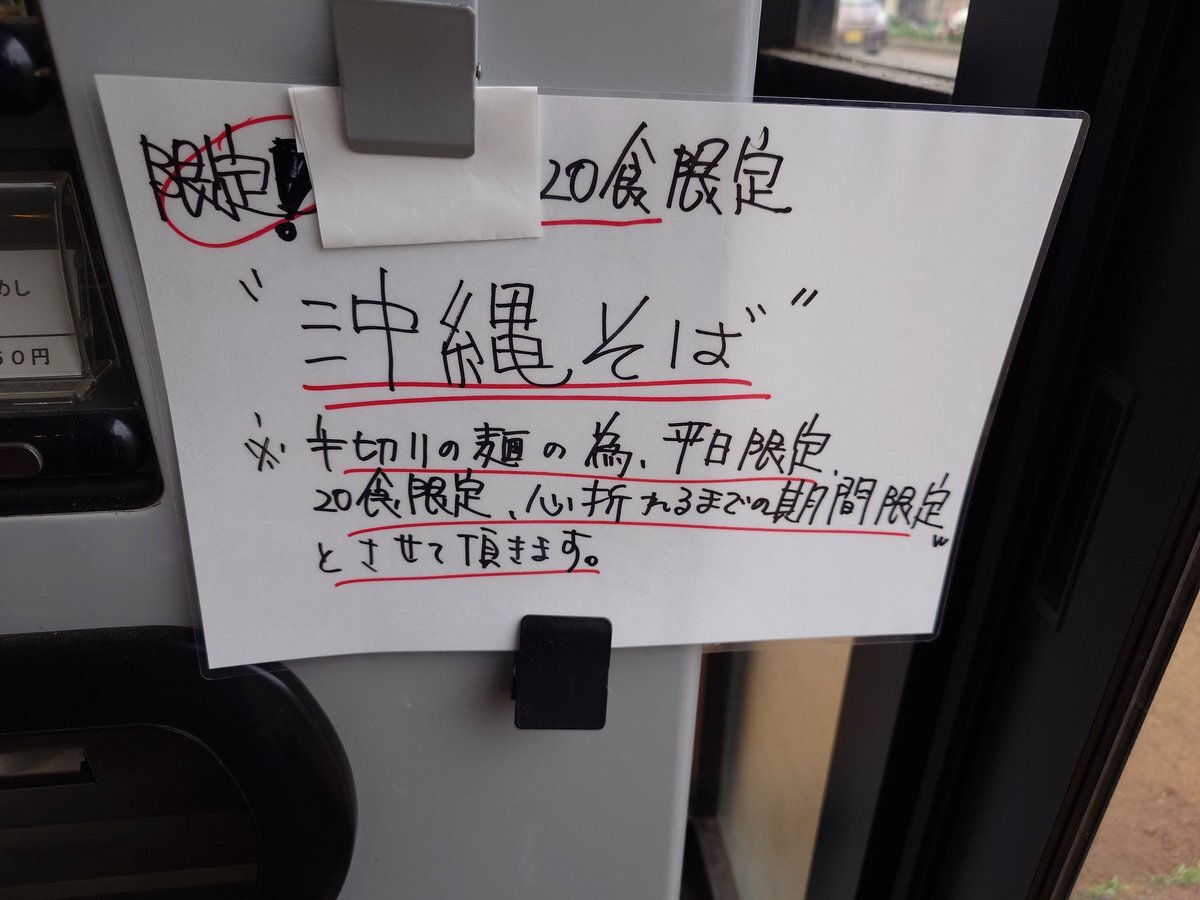 限定! 20食限定
"沖縄そば"
※手切りの麺の為、平日限定、
20食限定、心折れるまでの期間限定w
とさせて頂きます。
めし